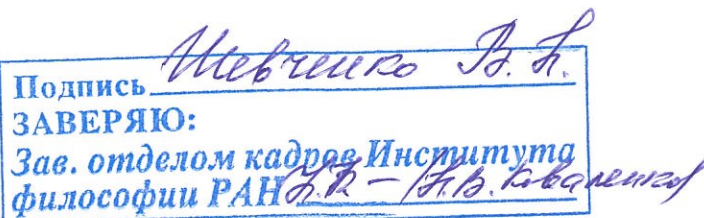 Подпись Шевченко В. Н.
ЗАВЕРЯЮ:
Зав. отделом кадров Института
философии РАН (Н.В. Коваленко)